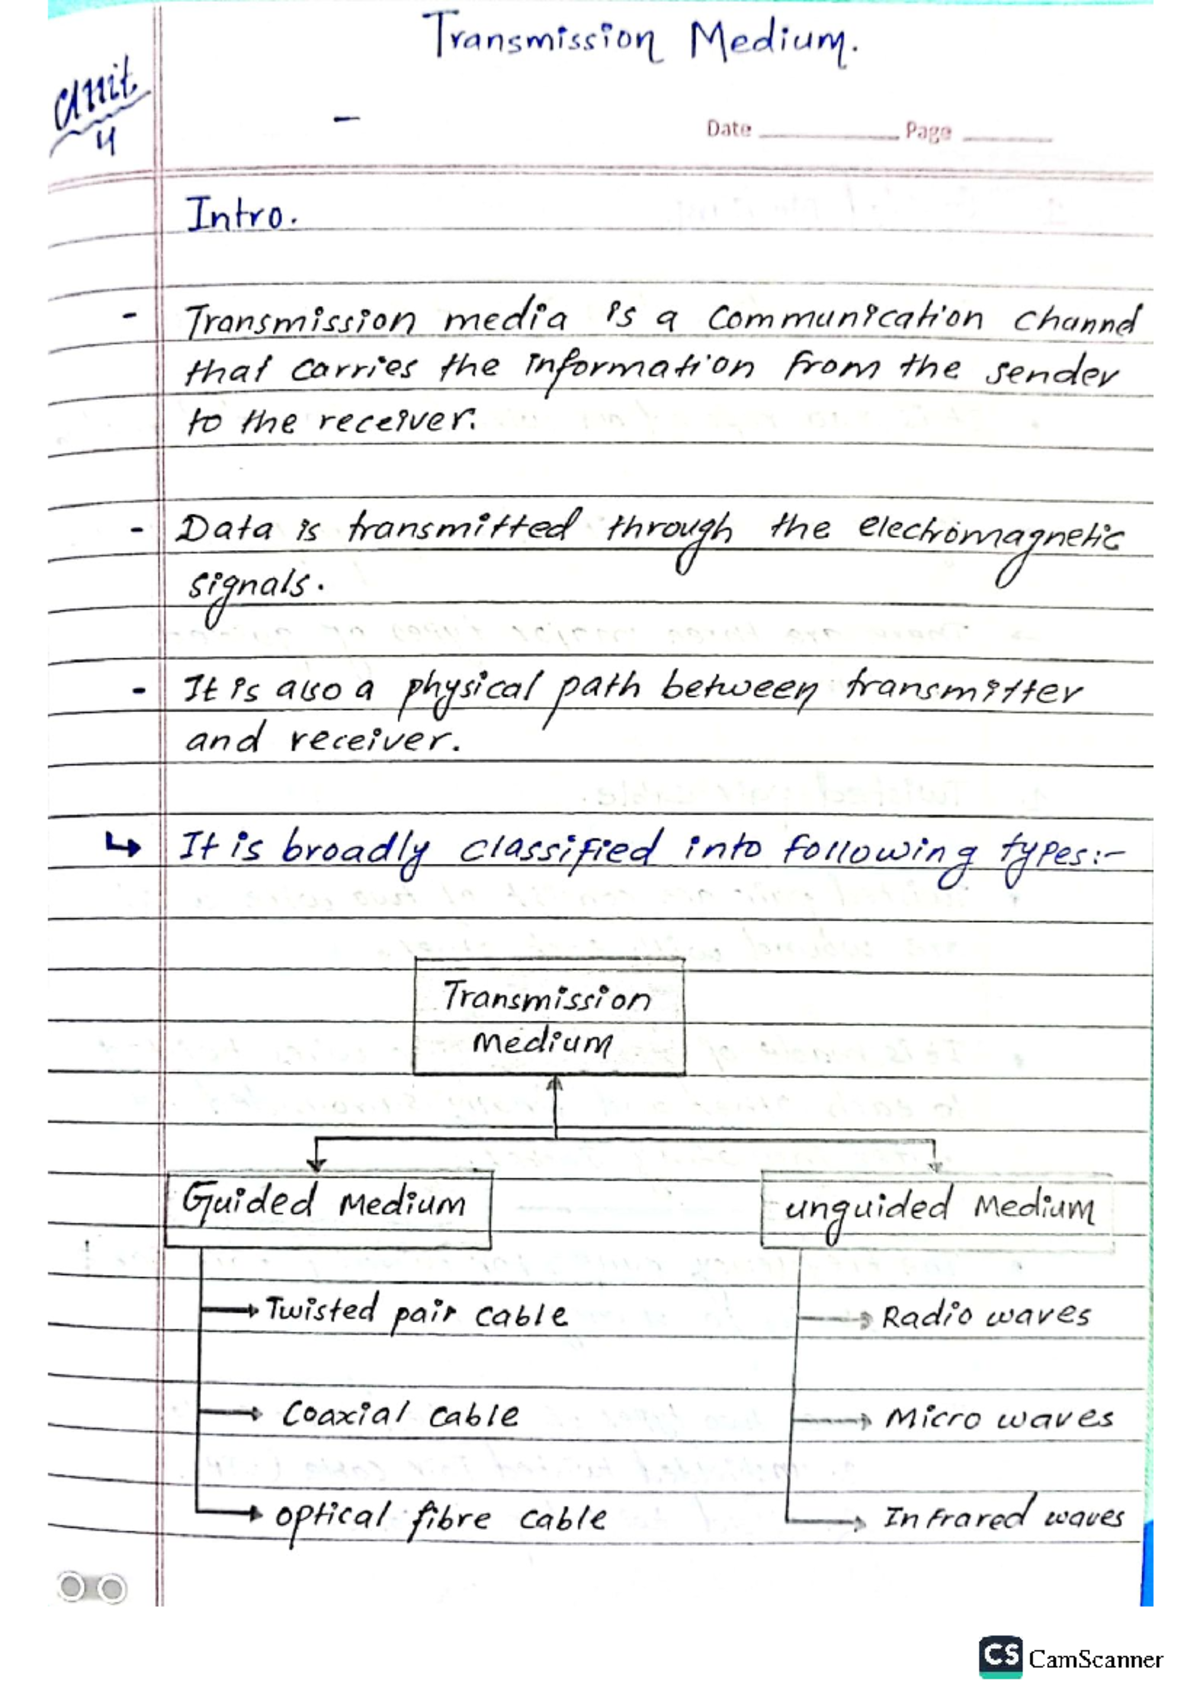 Transmission Medium.
Unit
4
-
Date Page
Intro.
- Transmission media is a communication channel
that carries the information from the sender
to the receiver.
- Data is transmitted through the electromagnetic
signals.
- It is also a physical path between transmitter
and receiver.
↳ It is broadly classified into following types:-
Transmission
medium
Guided Medium
unguided Medium
Twisted pair cable
Radio waves
Coaxial cable
Micro waves
optical fibre cable
Infrared waves
CS CamScanner